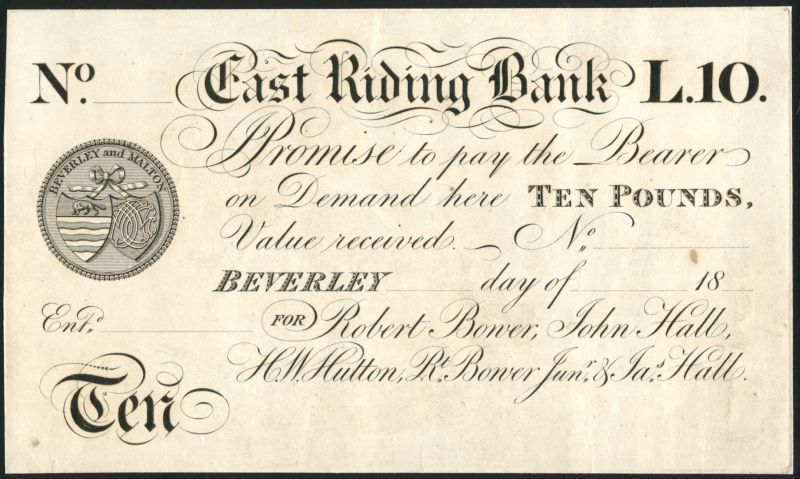 No. East Riding Bank L.10.
BEVERLEY and MALTON
I Promise to pay the Bearer
on Demand here TEN POUNDS,
Value received. No.
BEVERLEY day of 18
Entd. FOR Robert Bower, John Hall,
H.W. Hutton, Rt. Bower Junr. & Jas. Hall.
Ten